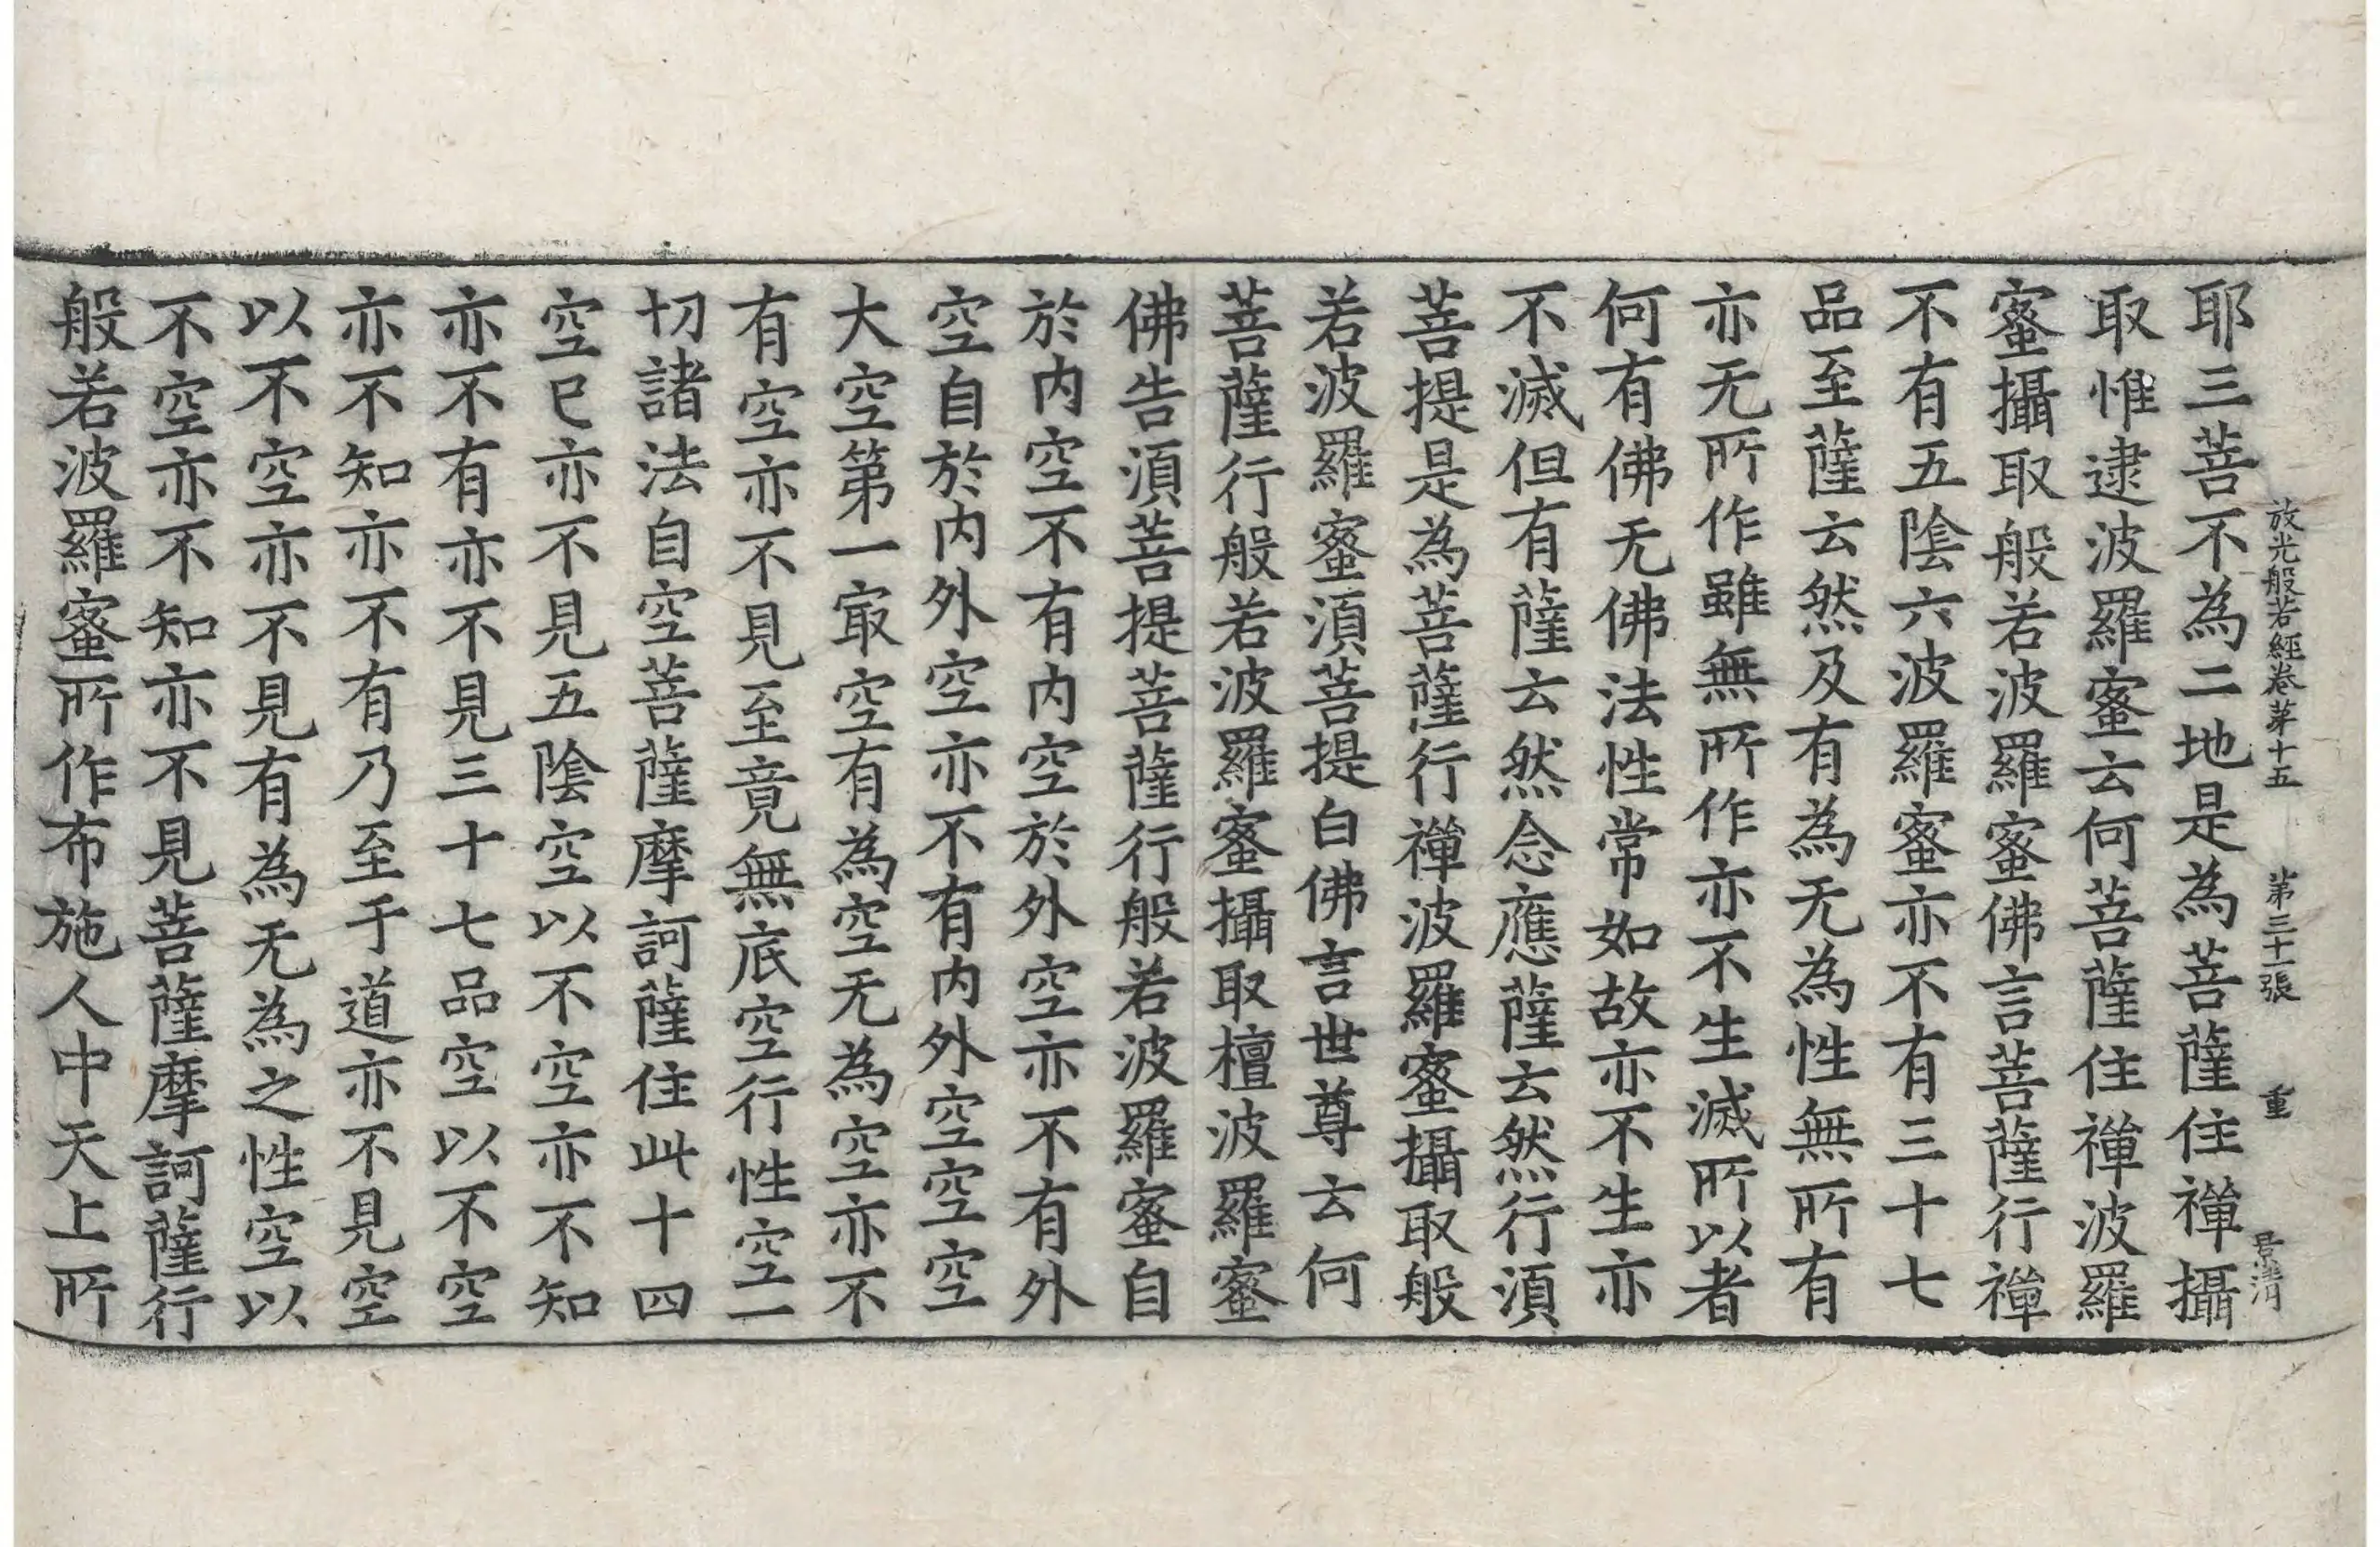 放光般若經卷苐十五 苐三十一張 重 君清
耶三菩不為二地是為菩薩住禪攝
取惟逮波羅蜜云何菩薩住禪波羅
蜜攝取般若波羅蜜佛言菩薩行禪
不有五陰六波羅蜜亦不有三十七
品至薩云然及有為无為性無所有
亦无所作雖無所作亦不生滅所以者
何有佛无佛法性常如故亦不生亦
不滅但有薩云然念應薩云然行湏
菩提是為菩薩行禪波羅蜜攝取般
若波羅蜜湏菩提白佛言世尊云何
菩薩行般若波羅蜜攝取檀波羅蜜
佛告湏菩提菩薩行般若波羅蜜自
於内空不有内空於外空亦不有外
空自於内外空亦不有内外空空空
大空第一㝡空有為空无為空亦不
有空亦不見至竟無底空行性空一
切諸法自空菩薩摩訶薩住此十四
空已亦不見五陰空以不空亦不知
亦不有亦不見三十七品空以不空
亦不知亦不有乃至于道亦不見空
以不空亦不見有為无為之性空以
不空亦不知亦不見菩薩摩訶薩行
般若波羅蜜所作布施人中天上所